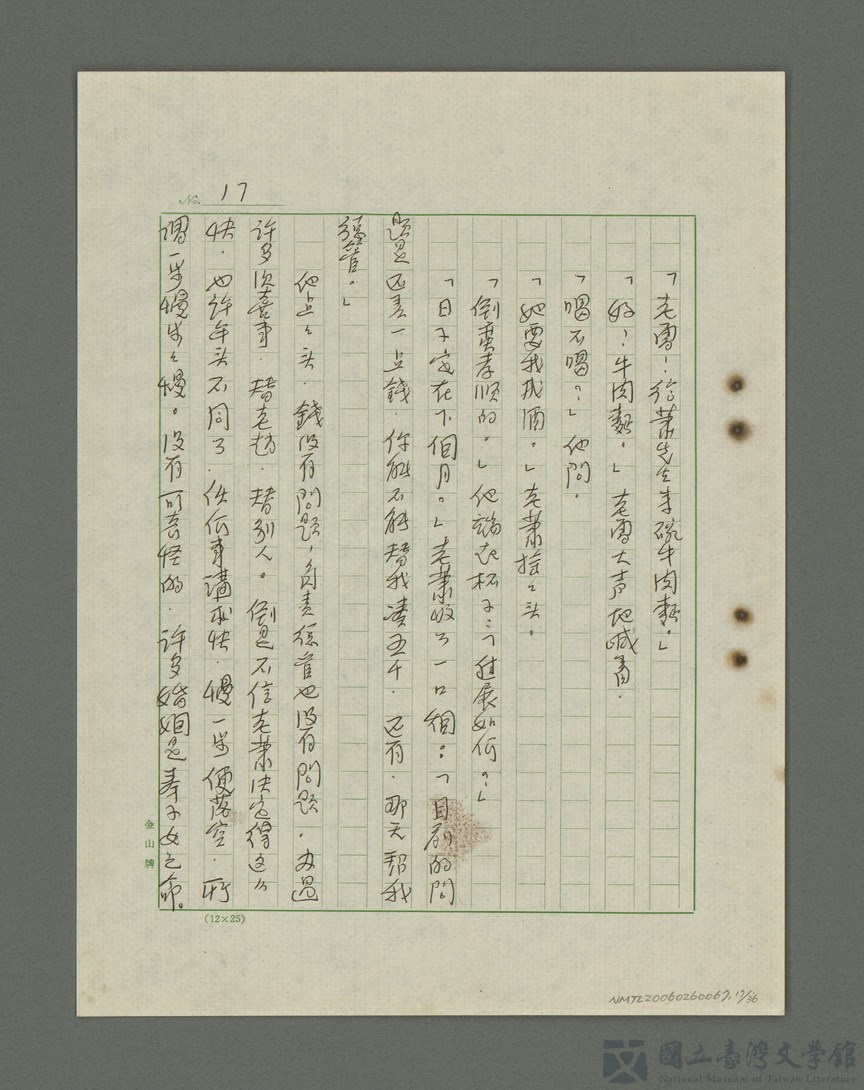 No. 17
「老雷！給葉先生來碗牛肉麵。」
「好！牛肉麵。」老雷大声地喊著．
「喝不喝？」他問．
「她要我戒酒。」老葉搖搖头．
「倒蠻孝順的。」他端起杯子：「進展如何？」
「日子定在下個月。」老葉吸了一口烟：「目前的問
題是还差一点錢．你能不能替我湊五千．还有．那天幫我
總管。」
他点点头．錢沒有問題，負責總管也沒有問題．办過
許多次喜事．替老趙．替別人。倒是不信老葉決定得这么
快．也許年头不同了．任何事講求快．慢一步便落空．所
謂一步慢步步慢。沒有可奇怪的．許多婚姻是奉子女之命。
金山牌
(12×25)
NMTL20060260067, 17/36
國立臺灣文學館
National Museum of Taiwan Literature